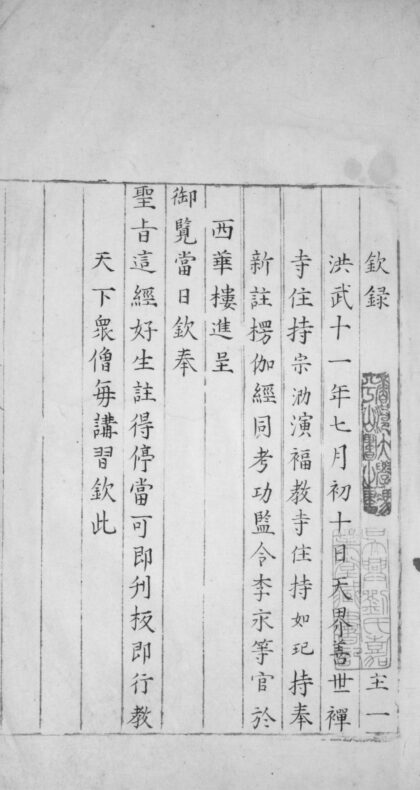 欽録
洪武十一年七月初十日天界善世禪
寺住持宗泐演福教寺住持如玘持奉
新註楞伽經同考功監令李永等官於
西華樓進呈
御覽當日欽奉
聖旨這經好生註得停當可即刋板即行教
天下衆僧每講習欽此